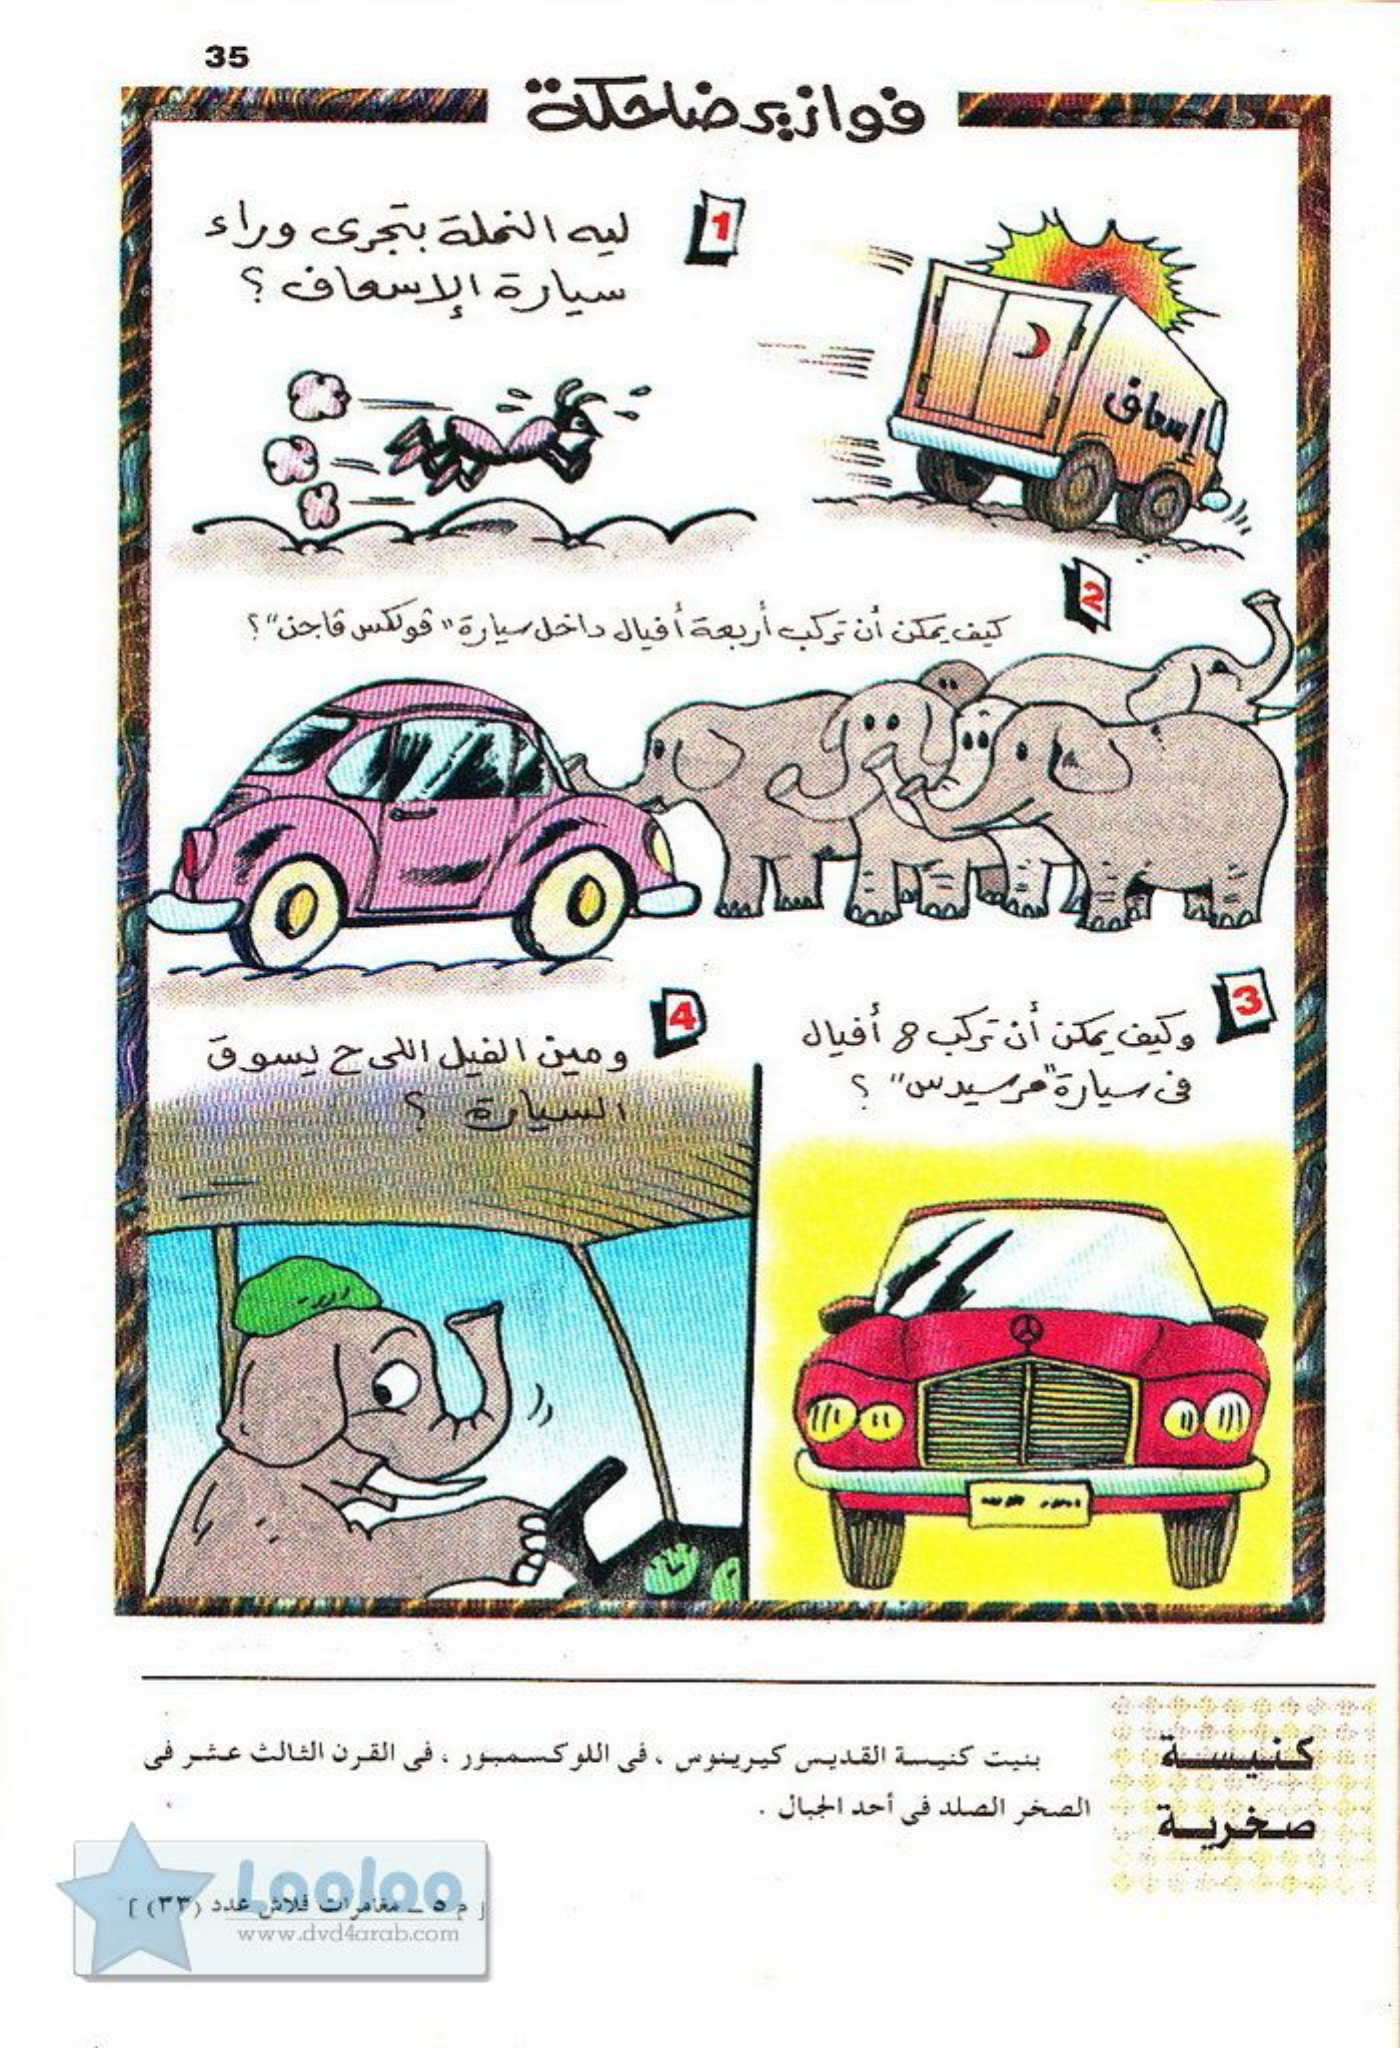 35
فوازير ضاحكة
1
ليه النملة بتجرى وراء
سيارة الإسعاف ؟
إسعاف
2
كيف يمكن أن تركب أربعة أفيال داخل سيارة "ڤولكس ڤاجن" ؟
3
وكيف يمكن أن تركب ٨ أفيال
فى سيارة "مرسيدس" ؟
4
ومين الفيل اللى ح يسوق
السيارة ؟
كنيسة
صخرية
بنيت كنيسة القديس كيرينوس ، فى اللوكسمبور ، فى القرن الثالث عشر فى
الصخر الصلد فى أحد الجبال .
[ م ٥ ــ مغامرات فلاش عدد (٣٣) ]
Looloo
www.dvd4arab.com